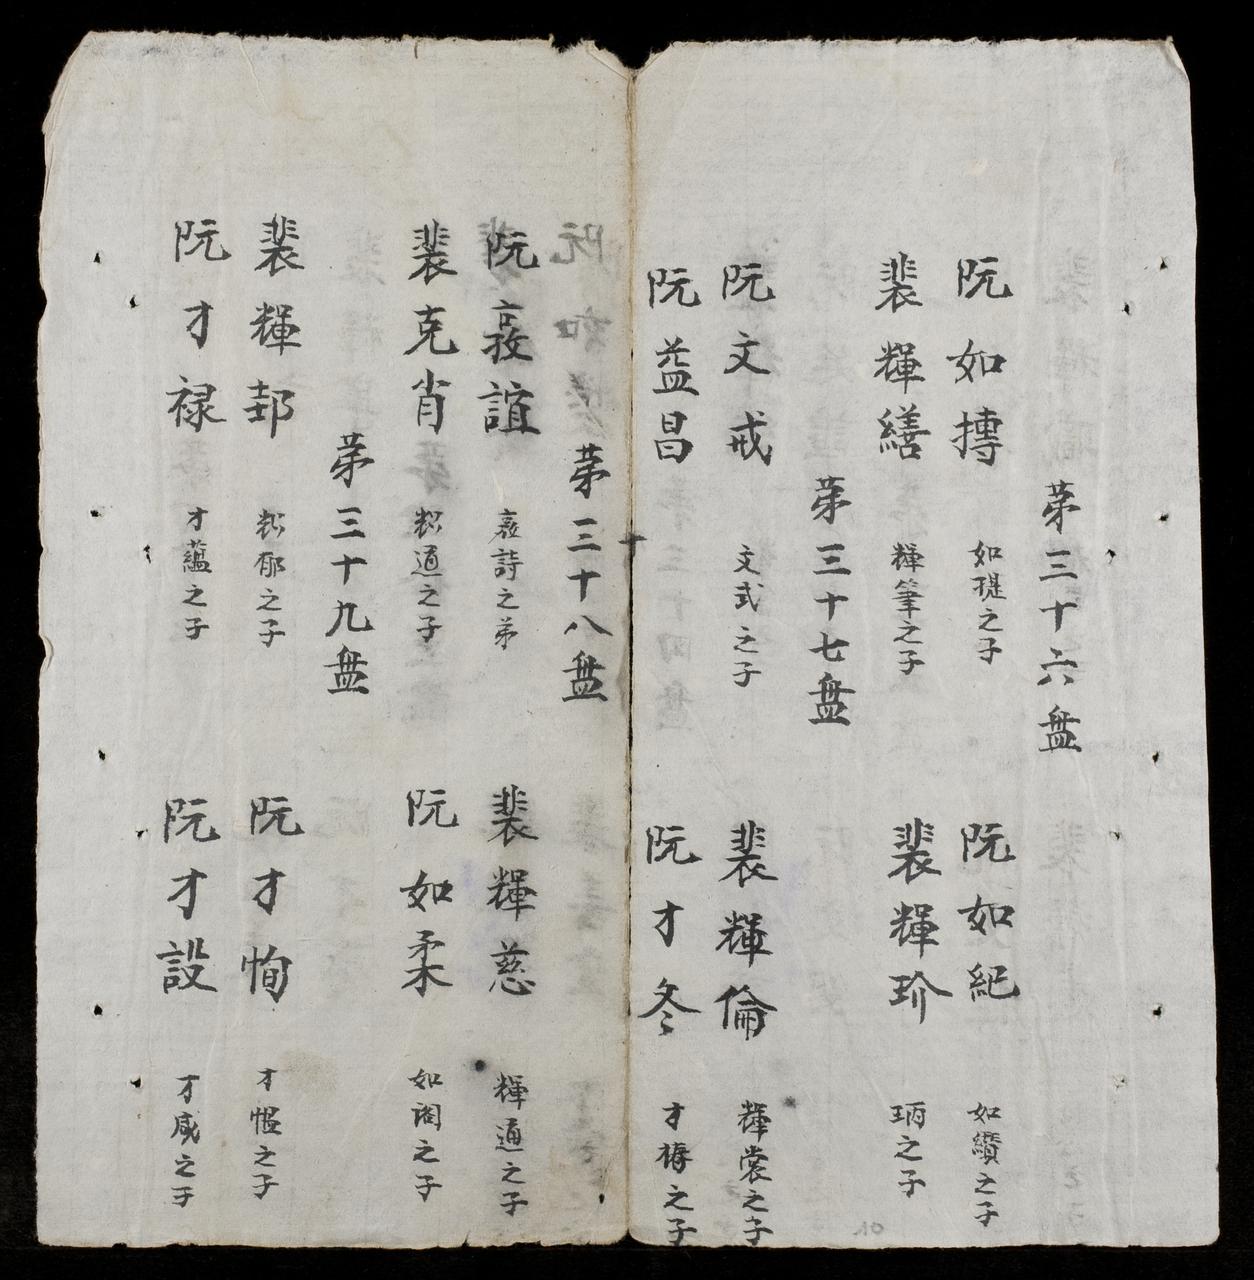 第三十六盤
阮如摶 如瑅之子
阮如紀 如纘之子
裴輝繕 輝筆之子
裴輝珍 珦之子
第三十七盤
阮文戒 文式之子
裴輝倫 輝裳之子
阮益昌
阮才冬 才榑之子
第三十八盤
阮 誼 詩之弟
裴輝慈 輝通之子
裴克肖 通之子
阮如柔 如閣之子
第三十九盤
裴輝邦 郁之子
阮才恂 才愠之子
阮才禄 才蘊之子
阮才設 才咸之子